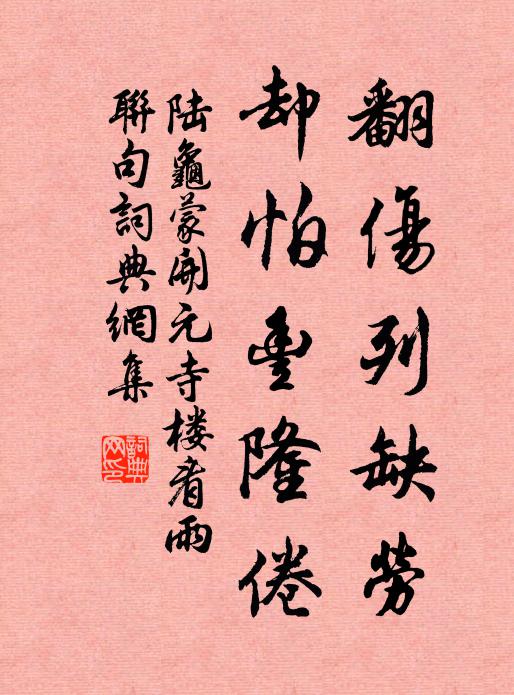 翻傷列缺勞
却怕豐隆倦
陸龜蒙開元寺楼看雨
聯句詞典網集
詞典網印